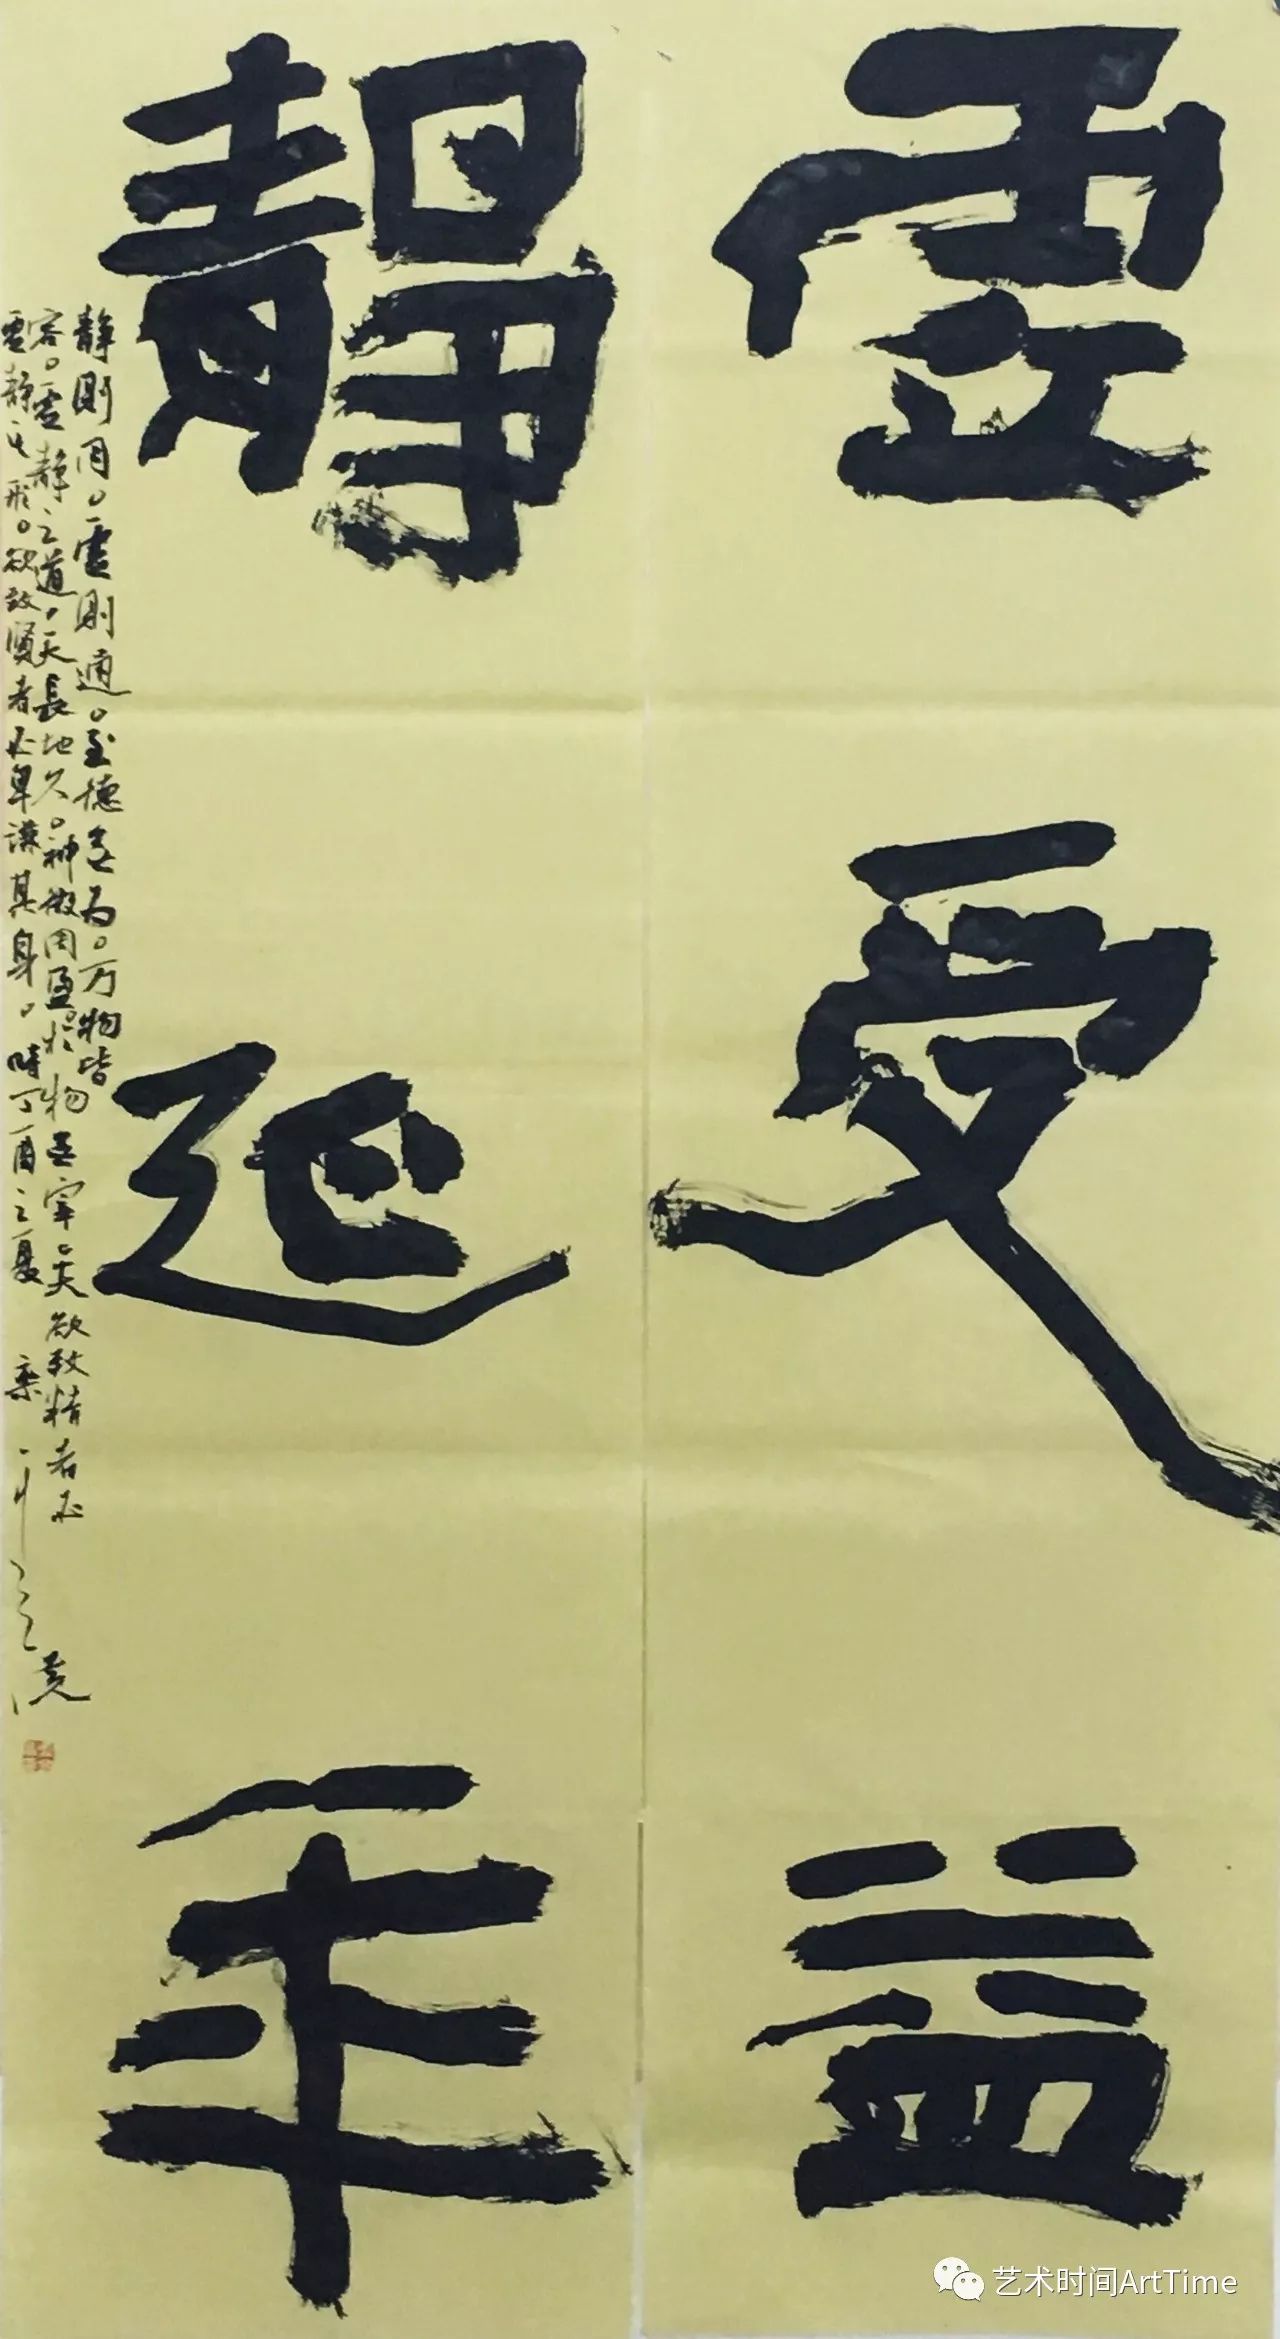 虚受益
靜延年
静則同。虚則通。至德無为。万物皆
容。虚静之道。天長地久。神微周盈。於物無宰。夫欲致精者必
虚静其形。欲致贤者必卑謙其身。時丁酉之夏
艺术时间ArtTime